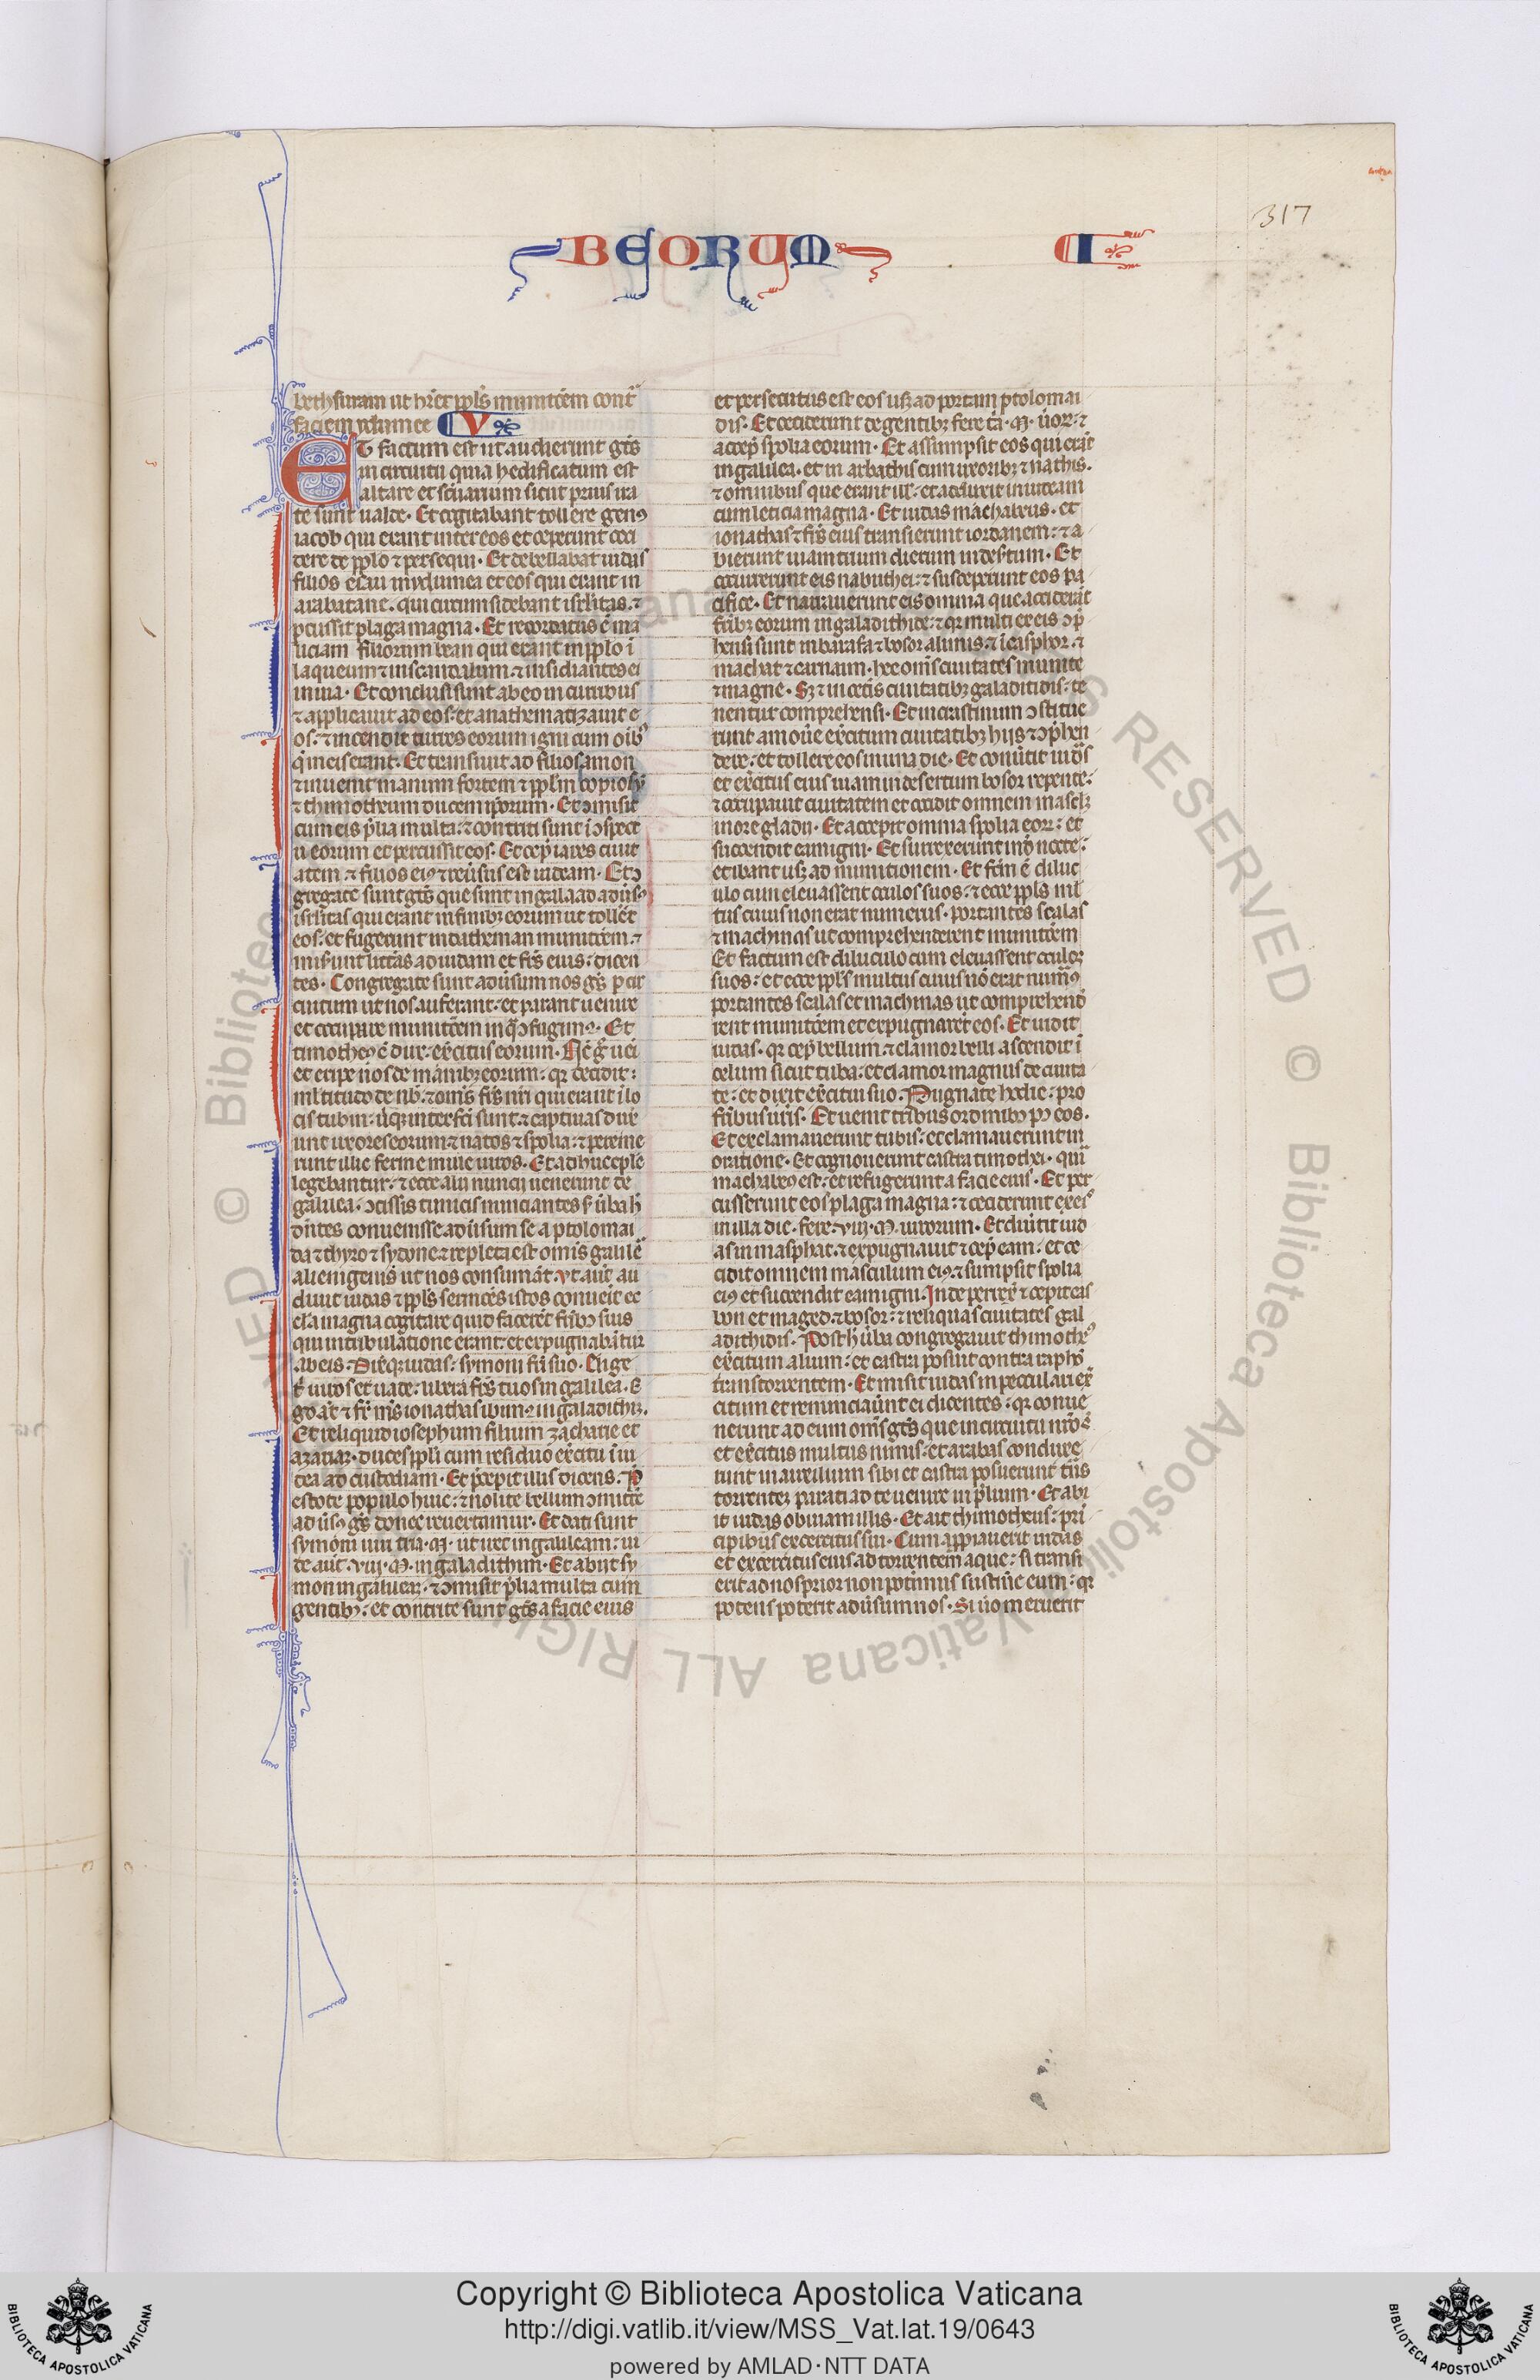 BEORUM
I
317
bethsuram ut hr̄et ppl̄s munitōem cont̄
faciem ydumee V
Et factum est ut audierunt gēs
in circuitu quia hedificatum est
altare et sc̄uarium sicut prius ira
te sunt ualde. Et cogitabant tollere genꝰ
iacob qui erant inter eos et ceperunt occi
dere de pplo ⁊ persequi. Et debellabat iudas
filios esau in ydumea et eos qui erant in
arabatane. qui circumsidebant isrlitas. ⁊
pcussit plaga magna. Et recordatus ē ma
liciam filiorum bean qui erant in pplo ī
laqueum ⁊ in scandalum. ⁊ insidiantes ei
in uia. Et conclusi sunt ab eo in turribus
⁊ applicauit ad eos. et anathematizauit e
os. ⁊ incendit turres eorum igni cum oībꝰ
q̄ in eis erant. Et transiuit ad filios amon
⁊ inuenit manum fortem ⁊ pplm copiosū
⁊ thimotheum ducem ipsorum. Et ↄmisit
cum eis p̄lia multa. ⁊ contriti sunt ī ↄspect
u eorum et percussit eos. Et cep̄ iazes ciuit
atem ⁊ filios eiꝰ ⁊ reūsus est iudeam. Et ↄ
gregate sunt gēs que sunt in galaad adūsꝰ
isrlitas qui erant in finibꝫ eorum ut tollēt
eos. et fugerunt in datheman munitōem. ⁊
miserunt litt̄as ad iudam et fr̄s eius: dicen
tes. Congregate sunt adūsum nos gēs p cir
cuitum ut nos auferant. et parant uenire
et occupare munitōem in quā ↄfugimꝰ. Et
timotheꝰ ē dux exercitus eorum. Nc̄ g̊ ueī
et eripe nos de manibꝫ eorum: qꝛ cecidit
multitudo de nb̄. ⁊ om̄s fr̄s nr̄i qui erant ī lo
cis tubin. ūqꝫ interfc̄i sunt. ⁊ captiuas dux̄
unt uxores eorum ⁊ natos ⁊ spolia. ⁊ pereme
runt illic ferme mille uiros. Et adhuc eple
legebantur. ⁊ ecce alij nuncij uenerunt de
galilea. ↄcissis tunicis nunciantes s̄ ūba h̄
dn̄tes conuenisse adūsum se a ptolomai
da ⁊ thyro ⁊ sydone. ⁊ repleta est om̄s galile
alienigenis ut nos consumāt. Vt aūt au
diuit iudas ⁊ ppl̄s sermōes istos conueit ec
cl̄a magna cogitare quid facerēt fr̄ibꝫ suis
qui in tribulatione erant. et expugnabātur
ab eis. Dixitqꝫ iudas: symoni fr̄i suo. Elige
t̄ uiros et uade. libera fr̄s tuos in galilea. E
go aūt ⁊ fr̄ ms̄ ionathas ibimꝰ in galadithiꝫ.
Et reliquid iosephum filium zacharie et
azariaꝫ. duces ppl̄i cum residuo exercitu ī iu
dea ad custodiam. Et p̄cepit illis dicens. P̄
estote populo huic: ⁊ nolite bellum ↄmittē
adūsꝰ gēs donec reuertamur. Et dati sunt
symoni uiri tria .M. ut iret in galileam: iu
de aūt .viij. M. in galadithim. Et abijt sy
mon in galileaꝫ. ⁊ ↄmisit p̄lia multa cum
gentibꝫ: et contrite sunt gēs a facie eius
et persecutus est eos usqꝫ ad portam ptolomai
dis. Et ceciderunt de gentibꝫ fere t̄a. M. uiorꝫ. ⁊
accep̄ spolia eorum. Et assumpsit eos qui erāt
in galilea. et in arbathis cum uxoribꝫ ⁊ nathis.
⁊ omnibus que erant ill̄. et adduxit in iudeam
cum leticia magna. Et iudas machabeus. et
ionathas ⁊ fr̄s eius transierunt iordanem: ⁊ a
bierunt uiam trium dierum in destum. Et
occurrerunt eis nabuthei: ⁊ susceperunt eos pa
cifice. Et narrauerunt eis omnia que acciderāt
fr̄ibꝫ eorum in galadithide: ⁊ qꝛ multi ex eis ↄp̄
hensi sunt in barasa ⁊ bosor alimis. ⁊ ī casphor. ⁊
machat ⁊ carnaim. hee om̄s ciuitates munite
⁊ magne. Sꝫ ⁊ in cet̄is ciuitatibꝫ galaditidis: te
nentur comprehensi. Et in crastinum ↄstitue
runt amoūe exercitum ciuitatibꝫ hijs ⁊ ↄp̄hen
dere: et tollere eos in una die. Et conūtit iudas
et exercitus eius uiam in desertum bosor repente:
⁊ occupauit ciuitatem et occidit omnem masclꝫ
in ore gladij. Et accepit omnia spolia eorꝫ: et
succendit eam igni. Et surrexerunt inde nocte:
et ibant usqꝫ ad munitionem. Et fcm̄ ē diluc
ulo cum eleuassent oculos suos: ⁊ ecce ppl̄s ml̄
tus cuius non erat numerus. portantes scalas
⁊ machinas ut comprehenderent munitōem
Et factum est diluculo cum eleuassent oculos
suos: et ecce ppl̄s multus cuius nō erat num̄ꝰ
portantes scalas et machinas ut comprehende
rent munitōem et expugnarēt eos. Et uidit
iudas. qꝛ cep̄ bellum. ⁊ clamor belli ascendit ī
celum sicut tuba: et clamor magnus de ciuita
te: et dixit exercitui suo. Pugnate hodie: pro
fr̄ibus ur̄is. Et uenit tribus ordinibꝫ pꝰ eos.
Et exclamauerunt tubis: et clamauerunt in
oratione. Et cognouerunt castra timothei. quia
machabeꝰ est: et refugerunt a facie eius. Et per
cusserunt eos plaga magna: ⁊ ceciderunt ex eis
in illa die. fere. viij. M. uirorum. Et diūtit iud
as in masphat. ⁊ expugnauit ⁊ cep̄ eam: et oc
cidit omnem masculum eiꝰ. ⁊ sumpsit spolia
eiꝰ et succendit eam igni. Inde perrexit ⁊ cepit cas
bon et maged. ⁊ bosor: ⁊ reliquas ciuitates gal
adithidis. Post h̄ ūba congregauit thimotheꝰ
exercitum alium: et castra posuit contra raphō
trans torrentem. Et misit iudas inspeculari exer
citum et renunciaūnt ei dicentes: qꝛ conue
nerunt ad eum om̄s gēs que in circuitu nr̄o ē
et exercitus multus nimis: et arabas conduxe
runt in auxilium sibi et castra posuerunt t̄ns
torrentem parati ad te uenire in p̄lium. Et abi
it iudas obuiam illis. Et ait thimotheus: pri
cipibus excercitus sui. Cum appiauerit iudas
et excercitus eius ad torrentem aque: si transi
erit ad nos prior non potimus sustin̄e eum: qꝛ
potens poterit adūsum nos. Si ūo metuerit
Copyright © Biblioteca Apostolica Vaticana
http://digi.vatlib.it/view/MSS_Vat.lat.19/0643
powered by AMLAD·NTT DATA
BIBLIOTECA APOSTOLICA VATICANA
BIBLIOTECA APOSTOLICA VATICANA